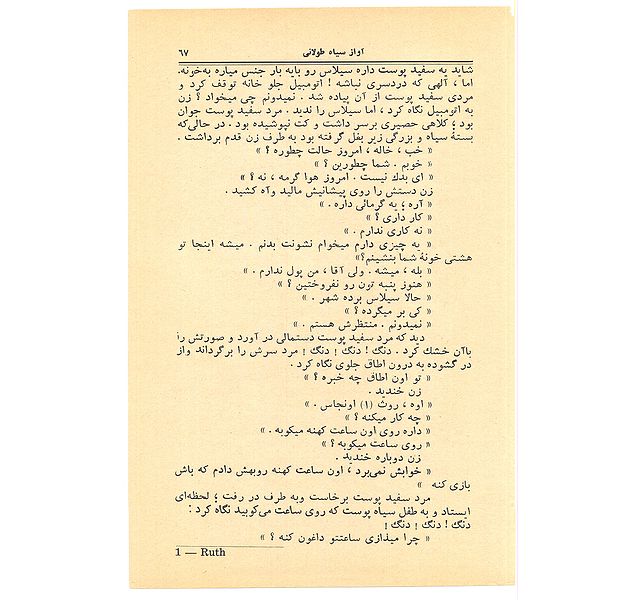 آواز سیاه طولانی ۶۷
شاید یه سفید پوست داره سیلاس رو بایه بار جنس میاره به‌خونه.
اما ، آلهی که دردسری نباشه ! اتومبیل جلو خانه توقف کرد و
مردی سفید پوست از آن پیاده شد . نمیدونم چی میخواد ؟ زن
به اتومبیل نگاه کرد ، اما سیلاس را ندید . مرد سفید پوست جوان
بود ؛ کلاهی حصیری برسر داشت و کت نپوشیده بود . در حالی‌که
بستهٔ سیاه و بزرگی زیر بغل گرفته بود به طرف زن قدم برداشت .
« خب ، خاله ، امروز حالت چطوره ؟ »
« خوبم . شما چطورین ؟ »
« ای بدك نیست . امروز هوا گرمه ، نه ؟ »
زن دستش را روی پیشانیش مالید وآه کشید .
« آره ؛ یه گرمائی داره . »
« کار داری ؟ »
« نه کاری ندارم . »
« یه چیزی دارم میخوام نشونت بدم . میشه اینجا تو
هشتی خونهٔ شما بنشینم؟»
« بله ، میشه . ولی آقا ، من پول ندارم . »
« هنوز پنبه تون رو نفروختین ؟ »
« حالا سیلاس برده شهر . »
« کی بر میگرده ؟ »
« نمیدونم . منتظرش هستم . »
دید که مرد سفید پوست دستمالی در آورد و صورتش را
باآن خشك کرد . دنگ ! دنگ ! دنگ ! مرد سرش را برگرداند واز
در گشوده به درون اطاق جلوی نگاه کرد .
« تو اون اطاق چه خبره ؟ »
زن خندید .
« اوه ، روث (۱) اونجاس . »
« چه کار میکنه ؟ »
« داره روی اون ساعت کهنه میکوبه . »
« روی ساعت میکوبه ؟ »
زن دوباره خندید .
« خوابش نمی‌برد ، اون ساعت کهنه روبهش دادم که باش
بازی کنه »
مرد سفید پوست برخاست وبه طرف در رفت ؛ لحظه‌ای
ایستاد و به طفل سیاه پوست که روی ساعت می‌کوبید نگاه کرد :
دنگ ! دنگ ! دنگ !
« چرا میذاری ساعتتو داغون کنه ؟ »
1 — Ruth